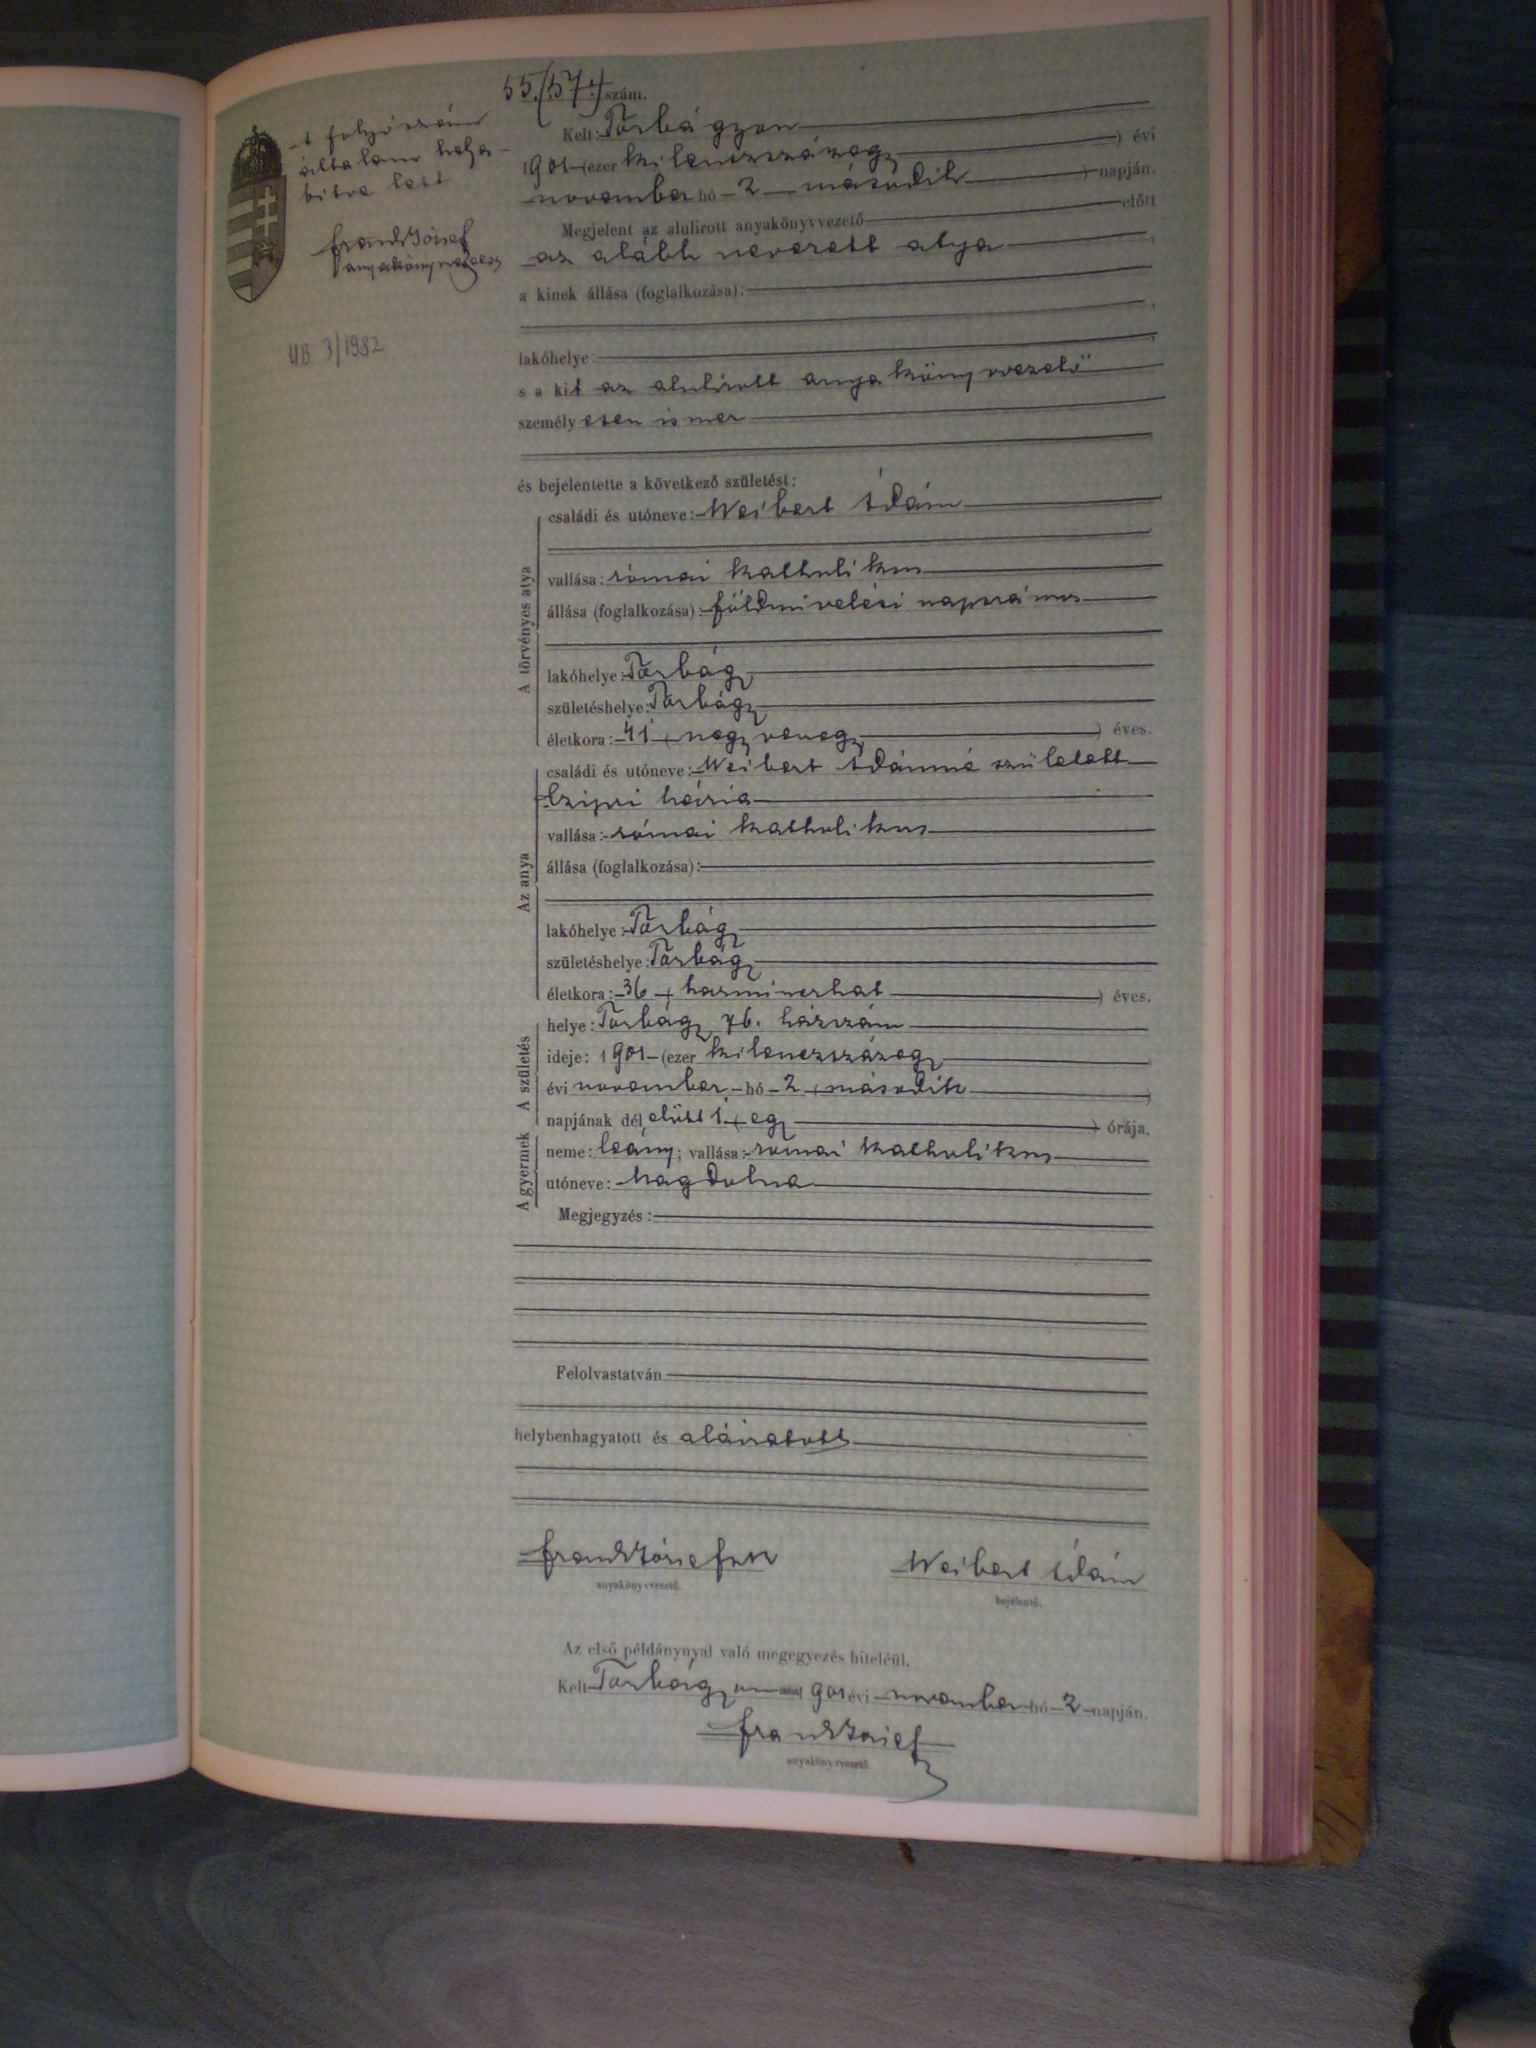 55. (57.) szám.
A folyószám
általam helyes-
bitve lett
Frank József
anyakönyvvezető
UB 3/1982
Kelt: Torbágyon
1901 (ezer kilenczszázegy) évi
november hó 2 második) napján.
Megjelent az alulirott anyakönyvvezető előtt
az alább nevezett atya,
a kinek állása (foglalkozása):
lakóhelye:
s a kit az alulirott anyakönyvvezető
személyesen ismer
és bejelentette a következő születést:
A törvényes atya
családi és utóneve: Weibert Ádám
vallása: római katholikus
állása (foglalkozása): földmivelési napszámos
lakóhelye: Torbágy
születéshelye: Torbágy
életkora: 41 (negyvenegy) éves.
Az anya
családi és utóneve: Weibert Ádámné született
Czipri Mária
vallása: római katholikus
állása (foglalkozása):
lakóhelye: Torbágy
születéshelye: Torbágy
életkora: 36 (harminczhat) éves.
A születés
helye: Torbágy 76. házszám
ideje: 1901 (ezer kilenczszázegy)
évi november hó 2 (második)
napjának dél előtt 1 (egy) órája.
A gyermek
neme: leány; vallása: római katholikus
utóneve: Magdolna
Megjegyzés:
Felolvastatván
helybenhagyatott és aláiratott
Frank József Weibert Ádám
anyakönyvvezető. bejelentő.
Az első példánynyal való megegyezés hiteléül.
Kelt Torbágyon 1901 évi november hó 2 napján.
Frank József
anyakönyvvezető.